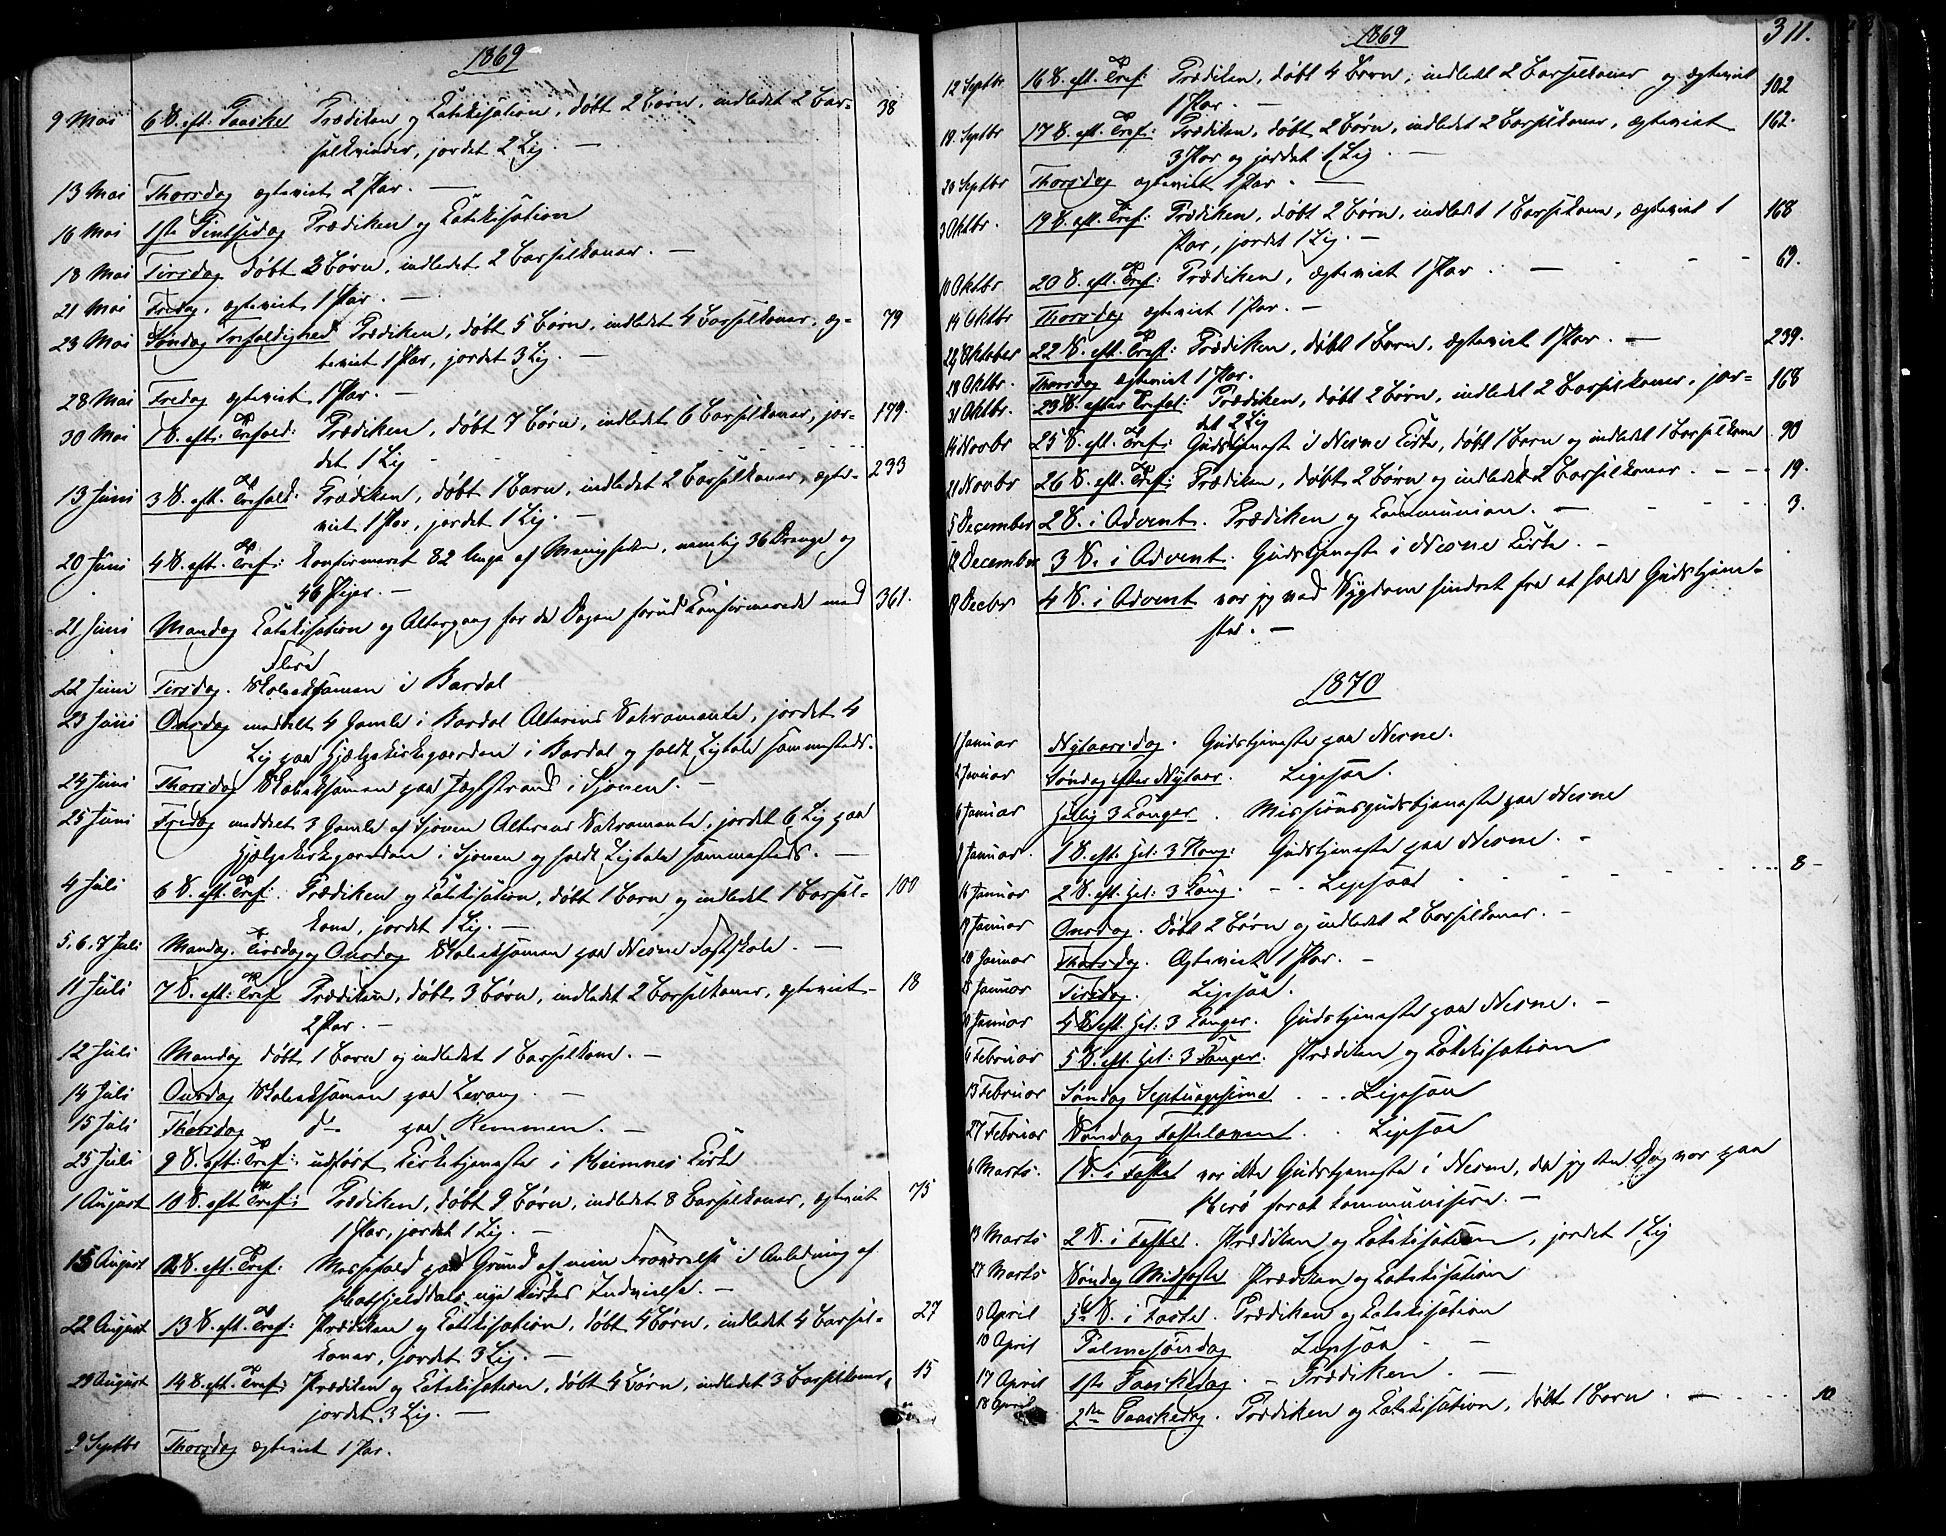 1869
9 Mai 6 S. eft. Paaske Prædiken og Katekisation, døbt 2 Børn, indledet 2 Bar- 38
selkvinder, jordet 2 Lig. —
13 Mai Thorsdag ægteviet 2 Par. —
16 Mai 1ste Pintsedag Prædiken og Katekisation
18 Mai Tirsdag døbt 3 Børn, indledet 2 Barselkoner. —
21 Mai Fredag, ægteviet 1 Par. —
23 Mai Søndag Trefoldighed Prædiken, døbt 5 Børn, indledet 4 Barselkoner, æg- 79
teviet 1 Par, jordet 3 Lig. —
28 Mai Fredag ægteviet 1 Par. —
30 Mai 1 S. eft: Trefold: Prædiken, døbt 7 Børn, indledet 6 Barselkoner, jor- 179.
det 1 Lig
13 Juni 3 S. eft. Trefold: Prædiken, døbt 1 Barn, indledet 2 Barselkoner, ægte- 233
viet 1 Par, jordet 1 Lig. —
20 Juni 4 S. eft. Tref: Konfirmeret 82 Unge af Menigheden, nemlig 36 Drenge og
46 Piger. —
21 Juni Mandag Katekisation og Altergang for de Dagen forud Konfirmerede med 361.
Flere
22 Juni Tirsdag. Skoleeksamen i Bardal
23 Juni Onsdag meddelt 4 Gamle i Bardal Alterens Sakramente, jordet 4
Lig paa Hjælpekirkegaarden i Bardal og holdt Ligtale sammesteds.
24 Juni Thorsdag Skoleeksamen paa Jægtstrand i Sjonen. —
25 Juni Fredag meddelt 3 Gamle af Sjonen Alterens Sakramente, jordet 6 Lig paa
Hjælpekirkegaarden i Sjonen og holdt Ligtale sammesteds. —
4 Juli 6 S. eft. Tref: Prædiken og Katekisation, døbt 1 Barn og indledet 1 Barsel- 100
kone, jordet 1 Lig. —
5. 6. 7 Juli Mandag, Tirsdag og Onsdag Skoleeksamen paa Nesne Fastskole. —
11 Juli 7 S. eft: Tref Prædiken, døbt 3 Børn, indledet 2 Barselkoner, ægteviet 18
2 Par. —
12 Juli Mandag døbt 1 Barn og indledet 1 Barselkone. —
14 Juli Onsdag Skoleeksamen paa Levang. —
15 Juli Thorsdag do paa Remmen. —
25 Juli 9 S. eft: Tref: udført Kirketjeneste i Hemnes Kirke
1 August 10 S. eft Tref: Prædiken, døbt 9 Børn, indledet 8 Barselkoner, ægteviet 75
1 Par, jordet 1 Lig. —
15 August 12 S. eft. Tref: Messefald paa Grund af min Fraværelse i Anledning af
Hatfjelddals nye Kirkes Indvielse. —
22 August 13 S. eft. Tref: Prædiken og Katekisation, døbt 4 Børn, indledet 4 Barsel- 27
koner, jordet 3 Lig. —
29 August 14 S. eft. Tref: Prædiken og Katekisation, døbt 4 Børn, indledet 3 Barselkoner, 15
jordet 3 Lig. —
9 Septbr Thorsdag ægteviet 1 Par.
1869 311.
12 Septbr 16 S. eft. Tref: Prædiken, døbt 4 Børn, indledt 2 Barselkoner og ægteviet 102
1 Par. —
19. Septbr 17 S. eft. Tref: Prædiken, døbt 2 Børn, indledet 2 Barselkoner, ægteviet 162.
3 Par og jordet 1 Lig —
Septbr Thorsdag ægteviet 1 Par. —
3 Oktbr. 19 S. eft. Tref: Prædiken, døbt 2 Børn, indledet 1 Barselkone, ægteviet 1 168
Par, jordet 1 Lig. —
10 Oktbr 20 S. eft. Tref: Prædiken, ægteviet 1 Par. — 69.
14 Oktbr Thorsdag ægteviet 1 Par. —
24 Oktober 22 S. eft. Tref: Prædiken, døbt 1 Barn, ægteviet 1 Par. — 239.
28 Oktbr. Thorsdag ægteviet 1 Par.
31 Oktbr. 23 S. efter Trefol: Prædiken, døbt 2 Børn, indledet 2 Barselkoner, jor- 168
det 2 Lig
14 Novbr 25 S. eft. Tref: Gudstjeneste i Nesne Kirke, døbt 1 Barn og indledet 1 Barselkone 90
21 Novbr 26 S. eft. Tref: Prædiken, døbt 2 Børn og indledet 2 Barselkoner. — 19.
5 December 2 S. i Advent. Prædiken og Kommunion. — 3.
12 December 3 S. i Advent. Gudstjeneste i Nesne Kirke. —
19 Decbr 4 S. i Advent var jeg ved Sygdom hindret fra at holde Gudstjene-
ste. —
1870
1 Januar Nytaarsdag. Gudstjeneste paa Nesne.
2 Januar Søndag efter Nytaar. Ligesaa.
6 Januar Hellig 3 Konger. Missionsgudstjeneste paa Nesne
9 Januar. 1 S. eft. Hel: 3 Kong: Gudstjeneste paa Nesne. —
16 Januar 2 S. eft. Hel: 3 Kong. - - Ligesaa 8 -
19 Januar Onsdag. Døbt 2 Børn og indledet 2 Barselkoner. —
20 Januar Thorsdag. Ægteviet 1 Par. —
25 Januar Tirsdag. Ligesaa.
30 Januar 4 S. eft. Hel: 3 Konger. Gudstjeneste paa Nesne. —
6 Februar 5 S. eft. Hel: 3 Konger. Prædiken og Katekisation
13 Februar Søndag Septuagesima - - Ligesaa
27 Februar Søndag Fastelaven. Ligesaa
6 Marts. 1 S. i Faste var ikke Gudstjeneste i Nesne, da jeg den Dag var paa
Herø forat kommunisere. —
13 Marts 2 S. i Faste. Prædiken og Katekisation, jordet 1 Lig
27 Marts Søndag Midfaste Prædiken og Katekisation
April 5te S. i Faste. Prædiken og Katekisation
10 April Palmesøndag Ligesaa —
17 April 1ste Paaskedag. - Prædiken. —
18 April 2den Paaskedag. Prædiken og Katekisation, døbt 1 Barn. — 10